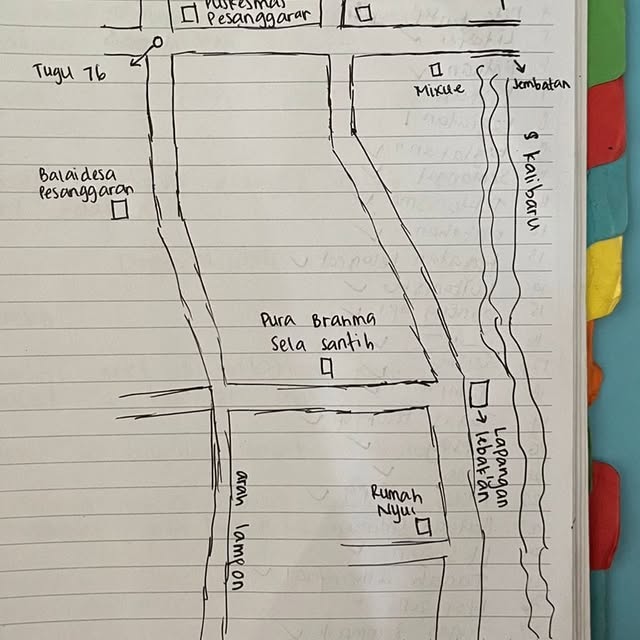 Puskesmas
Pesanggaran
Tugu 76
Mixue
Jembatan
S Kalibaru
Balaidesa
Pesanggaran
Pura Brahma
Sela Santih
Lapangan
Kebaktian
arah lampon
Rumah
Nyui